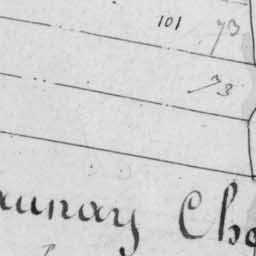 101 73
73
aunay Che